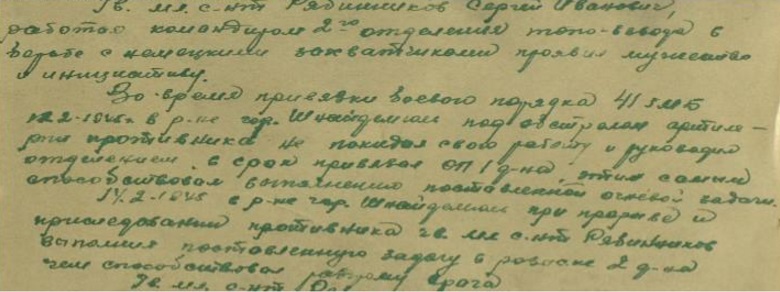 Гв. мл. с-нт Рябинников Сергей Иванович,
работая командиром 2го отделения топо-взвода в
борьбе с немецкими захватчиками проявил мужество
и инициативу.
Во время привязки боевого порядка 41 змб
12.2-1945г. в р-не гор. Шнайдемюль под обстрелом артиле-
рии противника не покидая свою работу и руководил
отделением, в срок привязал ОП 1 д-на, этим самым
способствовал выполнению поставленной огневой задачи.
14.2-1945 в р-не гор. Шнайдемюль при прорыве и
приследовании противника гв. мл с-нт Рябинников
выполнил поставленную задачу в розыске 2 д-на
чем способствовал разгрому врага
Гв. мл. с-нт